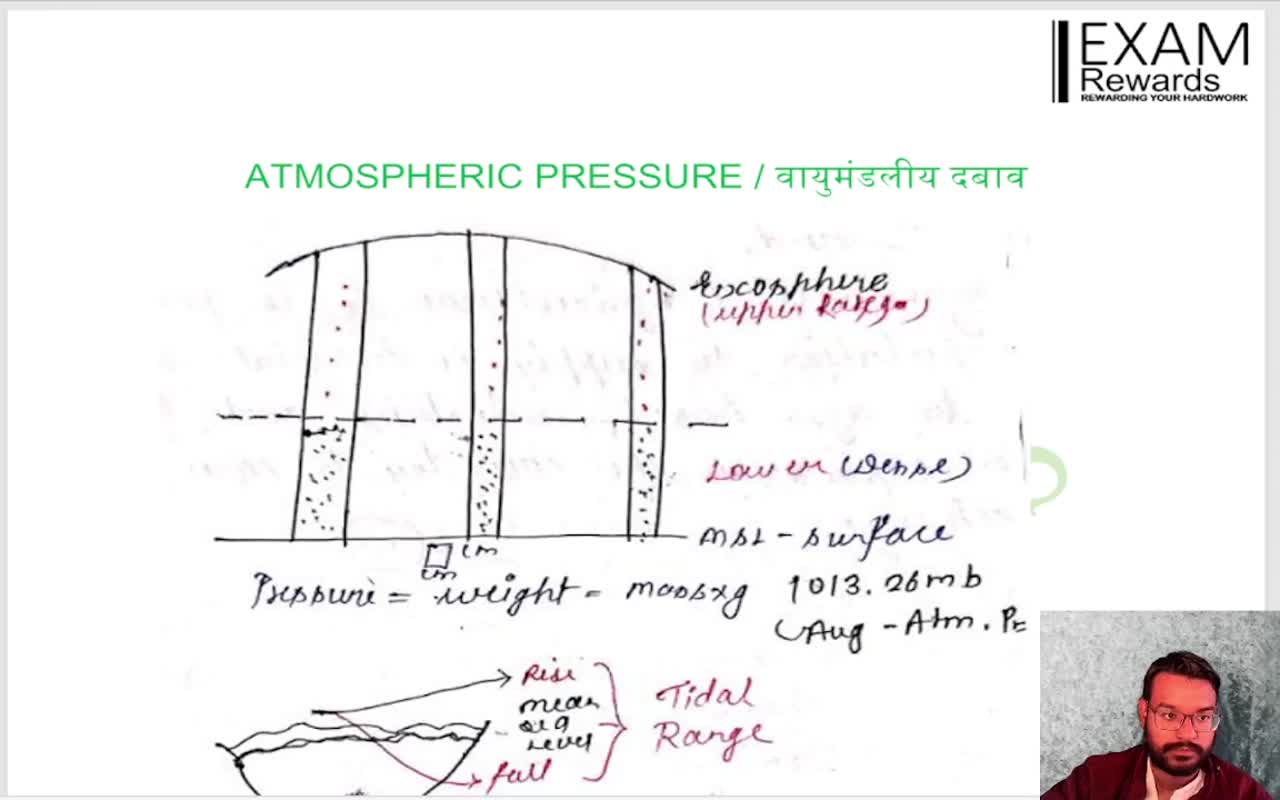 EXAM
Rewards
REWARDING YOUR HARDWORK
ATMOSPHERIC PRESSURE / वायुमंडलीय दबाव
Exosphere
(upper Range)
Lower (Dense)
MSL - surface
cm
cm
Pressure = weight = massxg
1013.26mb
(Avg - Atm. Pr
Rise
mean
sea
level
fall
Tidal
Range